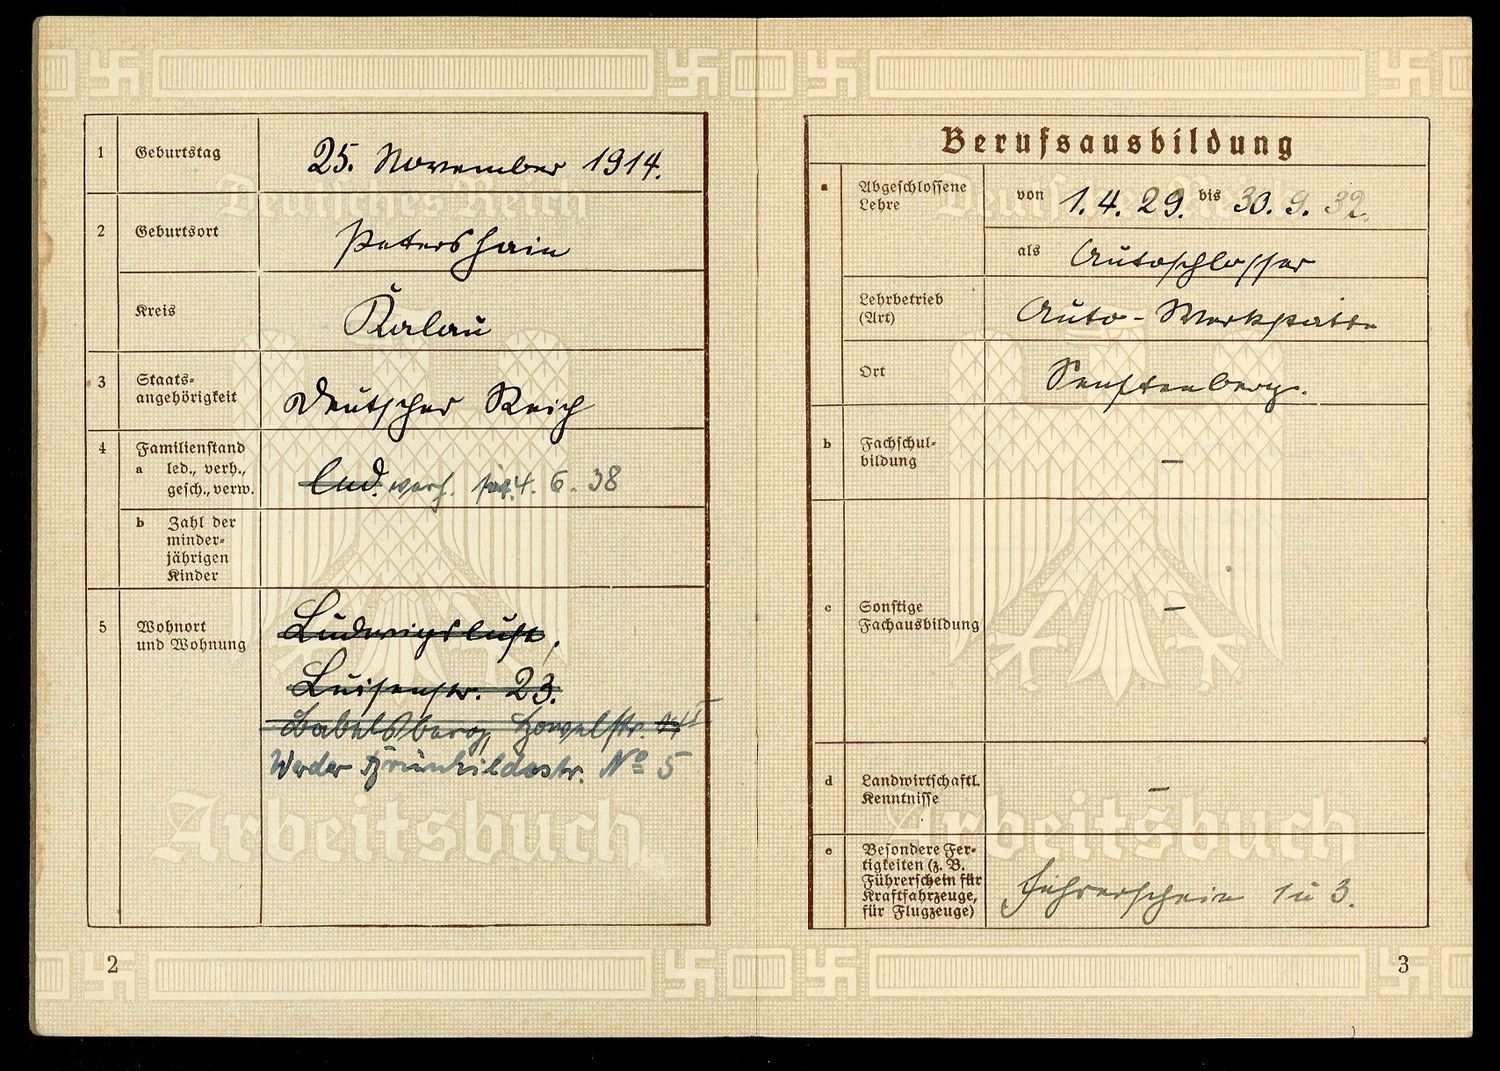 1 Geburtstag 25. November 1914.
2 Geburtsort Petershain
Kreis Kalau
3 Staats-
angehörigkeit Deutsches Reich
4 Familienstand
a led., verh.,
gesch., verw. led. verh. 4. 6. 38
b Zahl der
minder-
jährigen
Kinder
5 Wohnort
und Wohnung
Ludwigslust,
Luisenstr. 23.
Babelsberg,
Werder Brünhildestr. No 5
Deutsches Reich
Arbeitsbuch
2
Berufsausbildung
a Abgeschlossene
Lehre von 1. 4. 29. bis 30. 9. 32.
als Autoschlosser
Lehrbetrieb
(Art) Auto-Werkstatt
Ort Senftenberg.
b Fachschul-
bildung –
c Sonstige
Fachausbildung –
d Landwirtschaftl.
Kenntnisse –
e Besondere Fer-
tigkeiten (z. B.
Führerschein für
Kraftfahrzeuge,
für Flugzeuge) Führerschein 1 u 3.
Deutsches Reich
Arbeitsbuch
3